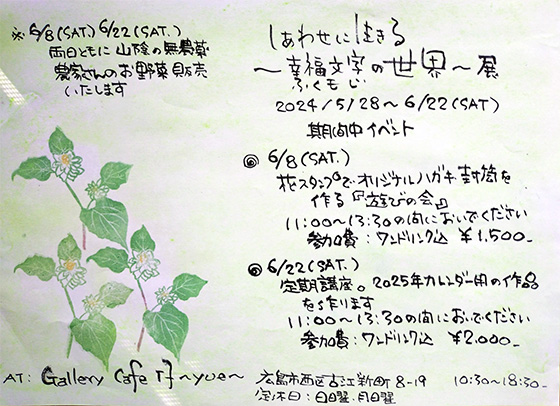 ※6/8(SAT) 6/22(SAT.)
両日ともに山陰の無農薬
農家さんのお野菜販売
いたします
しあわせに生きる
～幸福文字の世界～展
ふくもじ
2024/5/28～6/22(SAT)
期間中イベント
◎6/8(SAT.)
花スタンプでオリジナルハガキ封筒を
作る『遊びの会』
11:00～13:30の間においでください
参加費:ワンドリンク込 ¥1,500-
◎6/22(SAT.)
定期講座。2025年カレンダー用の作品
を作ります
11:00～13:30の間においでください
参加費:ワンドリンク込 ¥2,000-
AT: Gallery Cafe 月～yue～ 広島市西区古江新町8-19 10:30～18:30
定休日:日曜.月曜